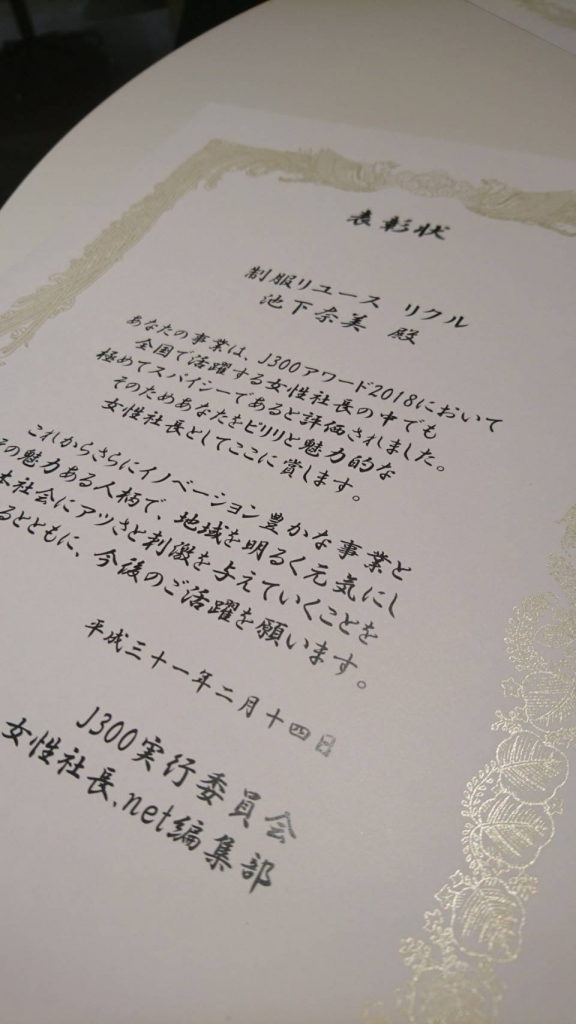 表彰状
制服リユース リクル
池下奈美 殿
あなたの事業は、J300アワード2018において
全国で活躍する女性社長の中でも
極めてスパイシーであると評価されました。
そのためあなたをピリリと魅力的な
女性社長としてここに賞します。
これからさらにイノベーション豊かな事業と
の魅力ある人柄で、地域を明るく元気にし
本社会にアツさと刺激を与えていくことを
るとともに、今後のご活躍を願います。
平成三十一年二月十四日
J300実行委員会
女性社長.net編集部